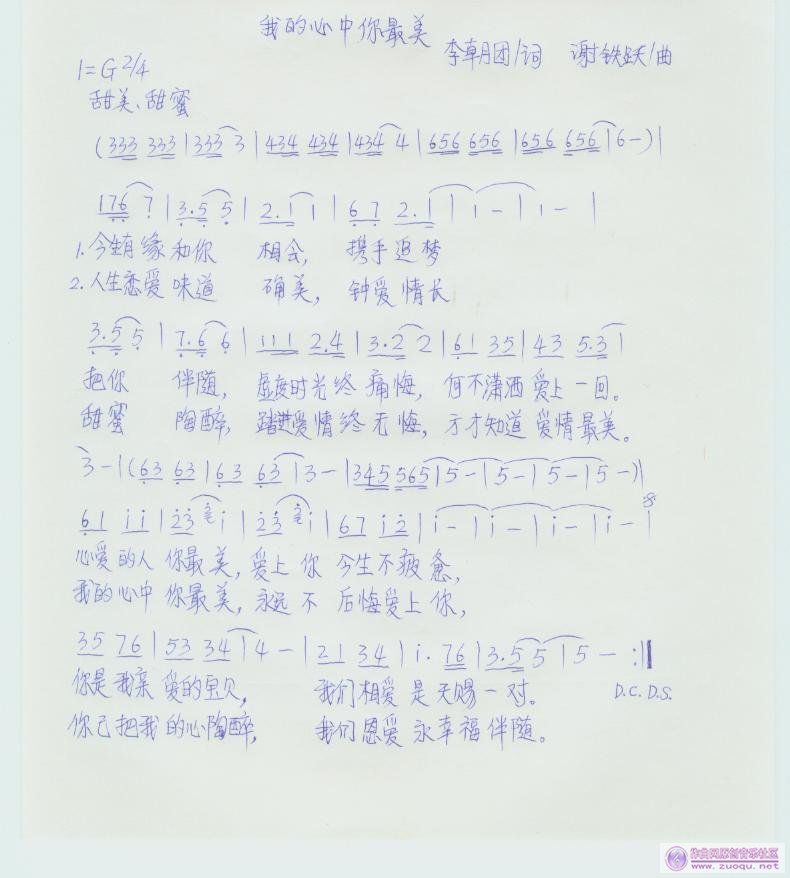 我的心中你最美
李朝团/词 谢铁跃/曲
1=G 2/4
甜美、甜蜜
(333 333 | 333 3 | 434 434 | 434 4 | 656 656 | 656 656 | 6 - ) |
176 7 | 3.5 5 | 2.1 1 | 67 2.1 | 1 - | 1 - |
1.今生有缘和你 相会, 携手追梦
2.人生恋爱味道 确美, 钟爱情长
3.5 5 | 7.6 6 | 111 2.4 | 3.2 2 | 61 35 | 43 5.3 |
把你 伴随, 虚度时光终痛悔, 何不潇洒爱上一回。
甜蜜 陶醉, 踏进爱情终无悔, 方才知道爱情最美。
3 - | (63 63 | 63 63 | 3 - | 345 565 | 5 - | 5 - | 5 - | 5 - ) |
61 i i | 23 i | 23 i | 67 i2 | i - | i - | i - | i - |
心爱的人你最美, 爱上你今生不疲惫,
我的心中你最美, 永远不后悔爱上你,
35 76 | 53 34 | 4 - | 21 34 | i. 76 | 3.5 5 | 5 - :|
你是我亲爱的宝贝, 我们相爱是天赐一对。 D.C. D.S.
你已把我的心陶醉, 我们恩爱永幸福伴随。
作曲网原创音乐社区
www.zuoqu.net